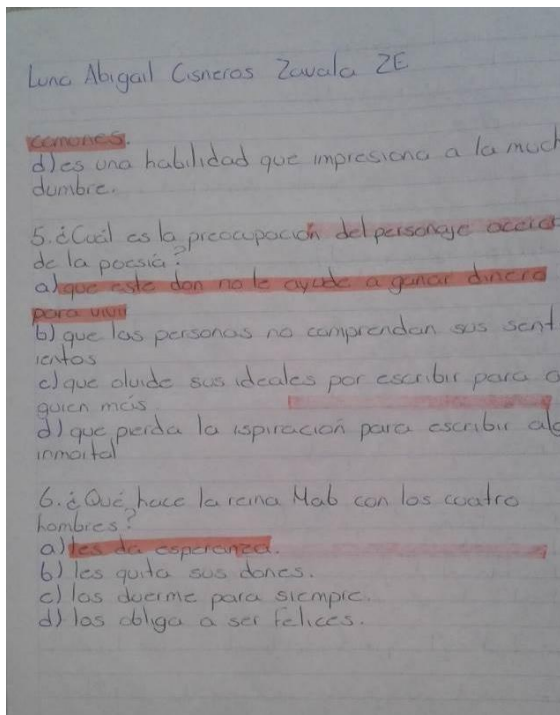 Luna Abigail Cisneros Zavala 2E
comunes.
d) es una habilidad que impresiona a la much
dumbre.
5. ¿Cuál es la preocupación del personaje acerca
de la poesía?
a) que este don no le ayude a ganar dinero
para vivir
b) que las personas no comprendan sus sent
ientos
c) que olvide sus ideales por escribir para a
guien más
d) que perda la ispiración para escribir alg
inmortal
6. ¿Qué hace la reina Mab con los cuatro
hombres?
a) les da esperanza.
b) les quita sus dones.
c) los duerme para siempre.
d) los obliga a ser felices.